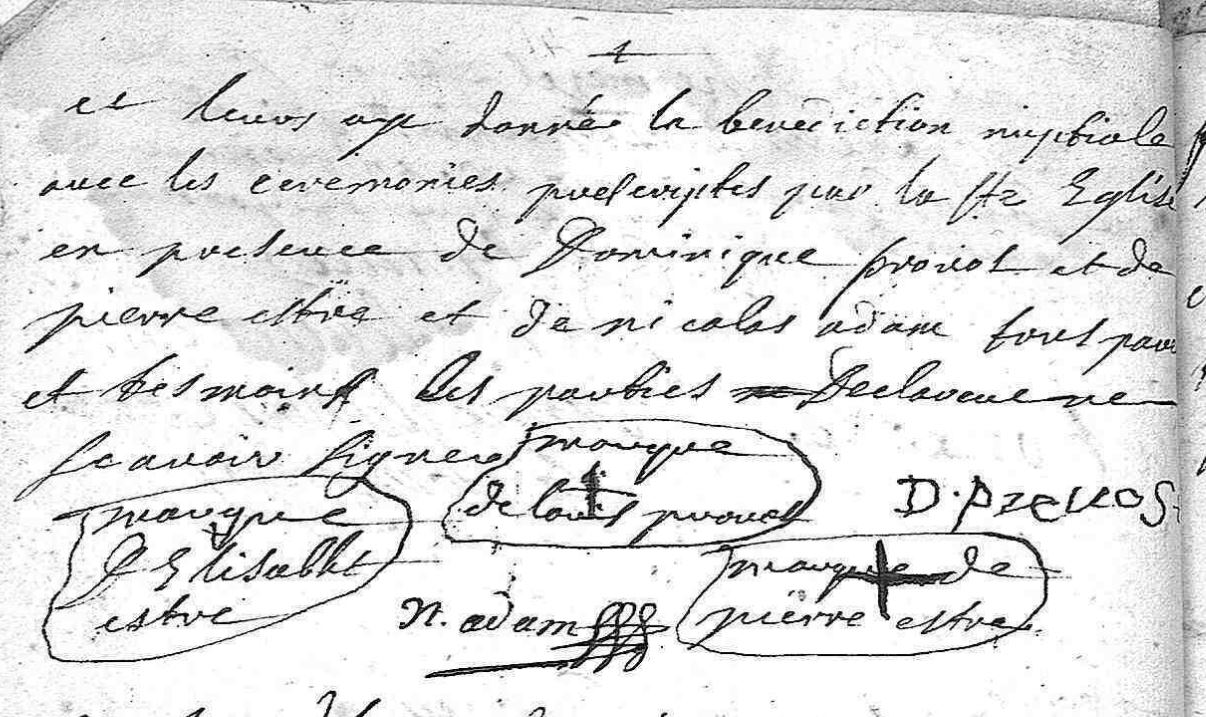 4
et leurs ay donnée la benediction nuptiale
avec les ceremonies prescriptes par la ste Eglise
en presence de Dominique provot et de
pierre estre et de nicolas adam tous
et tesmoins les parties Declareue ne
scavoir signer marque
de louis provot
D. przevos
marque
d Elisabht
estre
n. adam
marque de
pierre estre